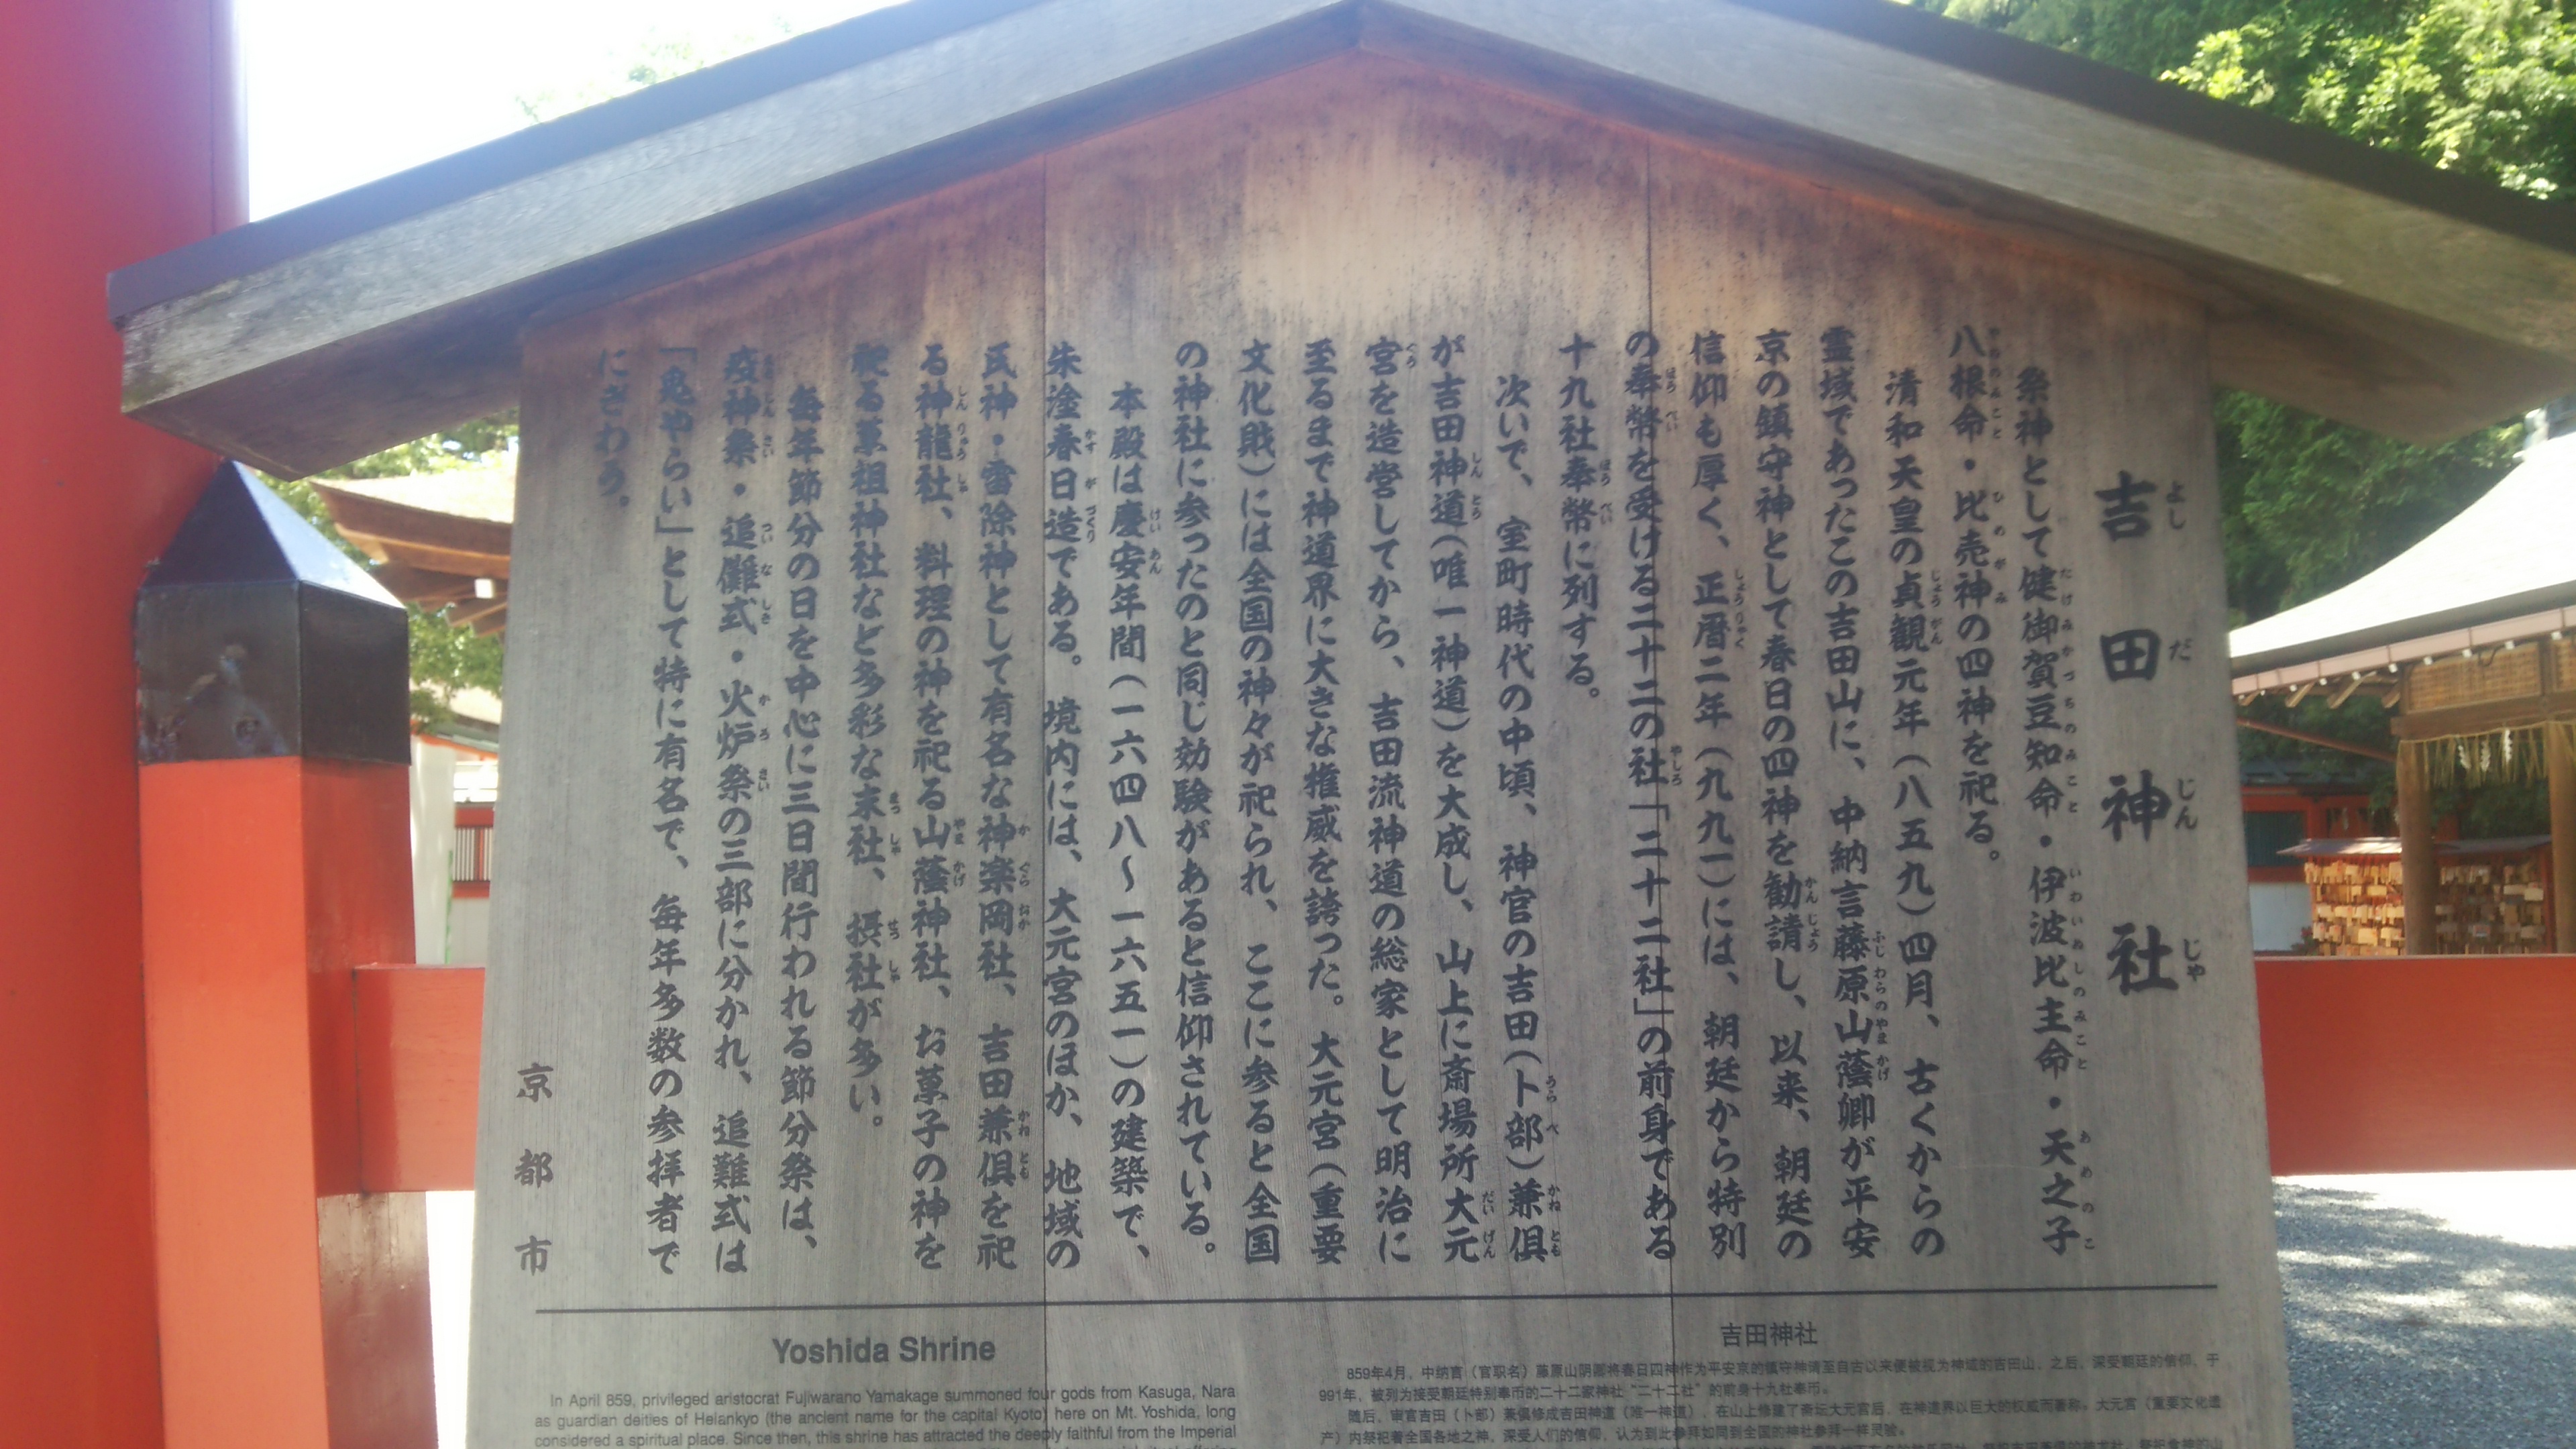 吉田神社
よしだじんじゃ
祭神として健御賀豆知命・伊波比主命・天之子
八根命・比売神の四神を祀る。
清和天皇の貞観元年(八五九)四月、古くからの
霊域であったこの吉田山に、中納言藤原山蔭卿が平安
京の鎮守神として春日の四神を勧請し、以来、朝廷の
信仰も厚く、正暦二年(九九一)には、朝廷から特別
の奉幣を受ける二十二の社「二十二社」の前身である
十九社奉幣に列する。
次いで、室町時代の中頃、神官の吉田(卜部)兼倶
が吉田神道(唯一神道)を大成し、山上に斎場所大元
宮を造営してから、吉田流神道の総家として明治に
至るまで神道界に大きな権威を誇った。大元宮(重要
文化財)には全国の神々が祀られ、ここに参ると全国
の神社に参ったのと同じ効験があると信仰されている。
本殿は慶安年間(一六四八〜一六五一)の建築で、
朱塗春日造である。境内には、大元宮のほか、地域の
氏神・雷除神として有名な神楽岡社、吉田兼倶を祀
る神龍社、料理の神を祀る山蔭神社、お菓子の神を
祀る菓祖神社など多彩な末社、摂社が多い。
毎年節分の日を中心に三日間行われる節分祭は、
疫神祭・追儺式・火炉祭の三部に分かれ、追難式は
「鬼やらい」として特に有名で、毎年多数の参拝者で
にぎわう。
京都市
Yoshida Shrine
In April 859, privileged aristocrat Fujiwarano Yamakage summoned four gods from Kasuga, Nara
as guardian deities of Heiankyo (the ancient name for the capital Kyoto) here on Mt. Yoshida, long
considered a spiritual place. Since then, this shrine has attracted the deeply faithful from the Imperial
吉田神社
859年4月，中纳言（官职名）藤原山阴卿将春日四神作为平安京的镇守神请至自古以来便被视为神域的吉田山，之后，深受朝廷的信仰，于
991年，被列为接受朝廷特别奉币的二十二家神社“二十二社”的前身十九社奉币。
随后，神官吉田（卜部）兼俱修成吉田神道（唯一神道），在山上修建了斋坛大元宫后，在神道界以巨大的权威而著称。大元宫（重要文化遗
产）内祭祀着全国各地之神，深受人们的信仰，认为到此参拜如同到全国的神社参拜一样灵验。